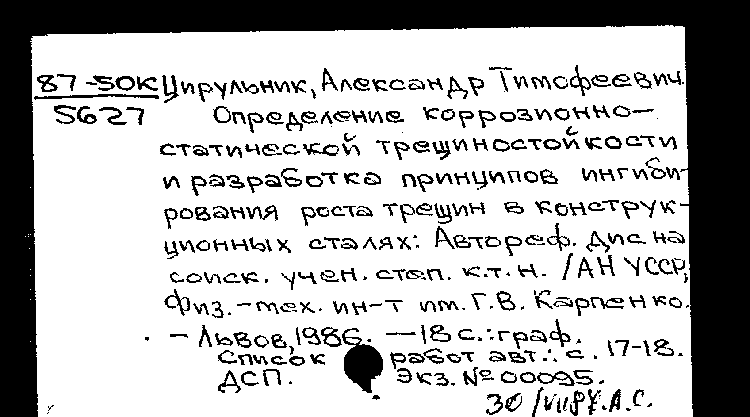 87-50К Цирульник, Александр Тимофеевич.
5627 Определение коррозионно-
статической трещиностойкости
и разработка принципов ингиби-
рования роста трещин в конструк-
ционных сталях: Автореф. дис на
соиск. учен. степ. к.т.н. /АН УССР,
Физ.-мех. ин-т им. Г.В. Карпенко.
- Львов, 1986. - 18 с.: граф.
Список работ авт.: с. 17-18.
ДСП. Экз. № 00095.
30/VII 87. А.С.